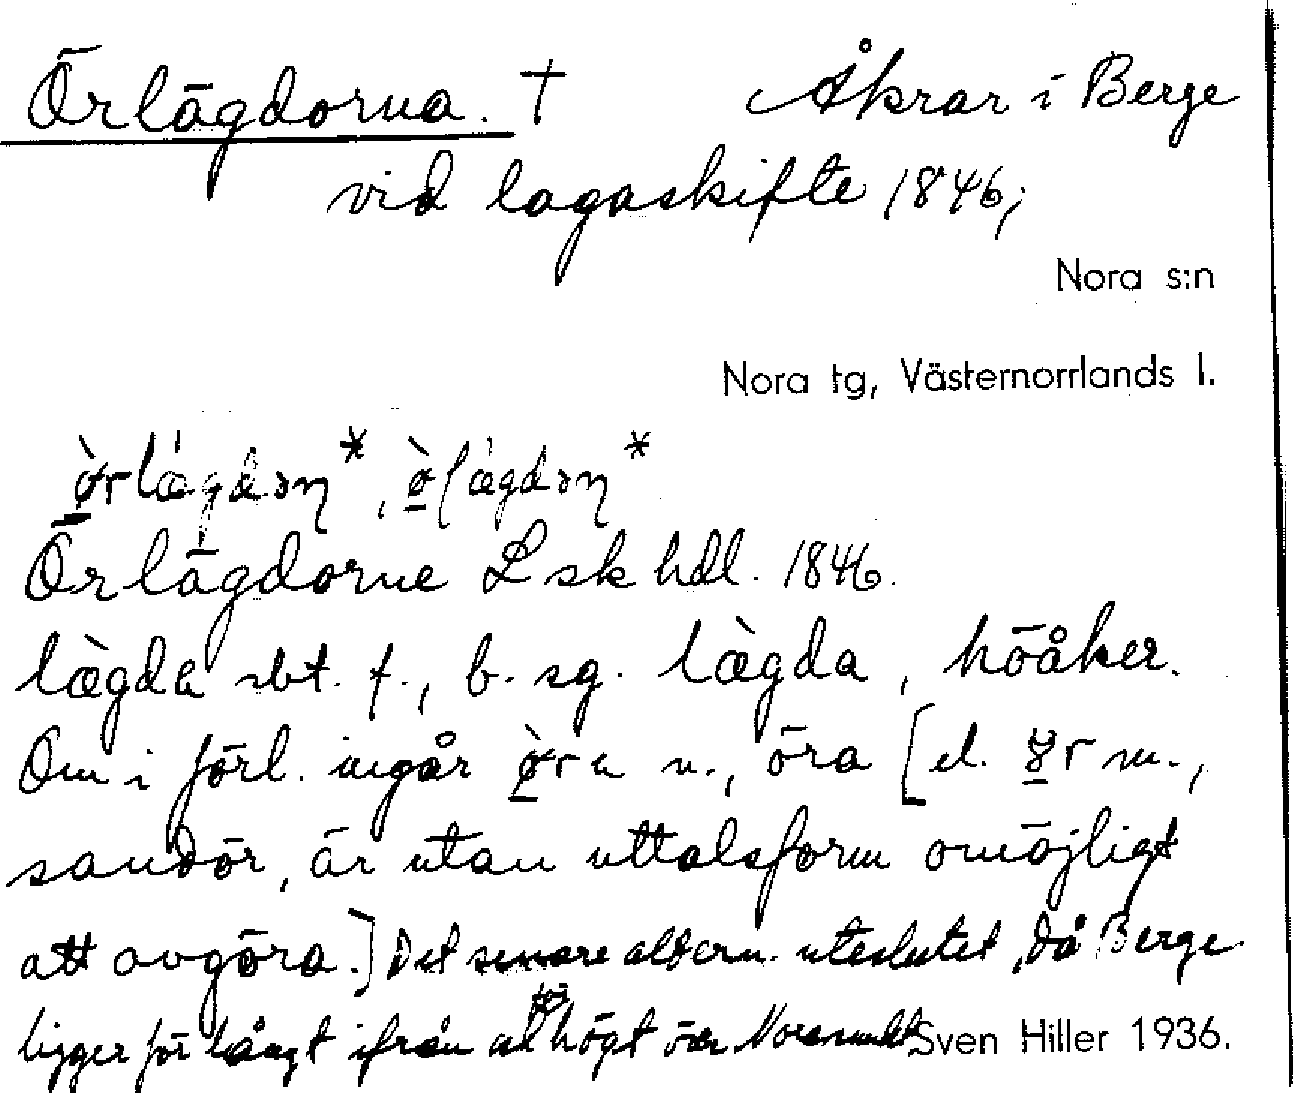 Örlägdorna. † Åkrar i Berge
vid lagaskifte 1846;
Nora s:n
Nora tg, Västernorrlands l.
ø̀rlægdəɳ*, ø̀lægdəɳ*
Örlägdorne Lsk hdl. 1846.
lægda sbt. f., b. sg. lægda, höåker.
Om i förl. ingår ø̀ra n., öra [el. ør m.,
sandör, är utan uttalsform omöjligt
att avgöra.] Det senare altern. uteslutet, då Berge
ligger för långt ifrån högt över Sven Hiller 1936.